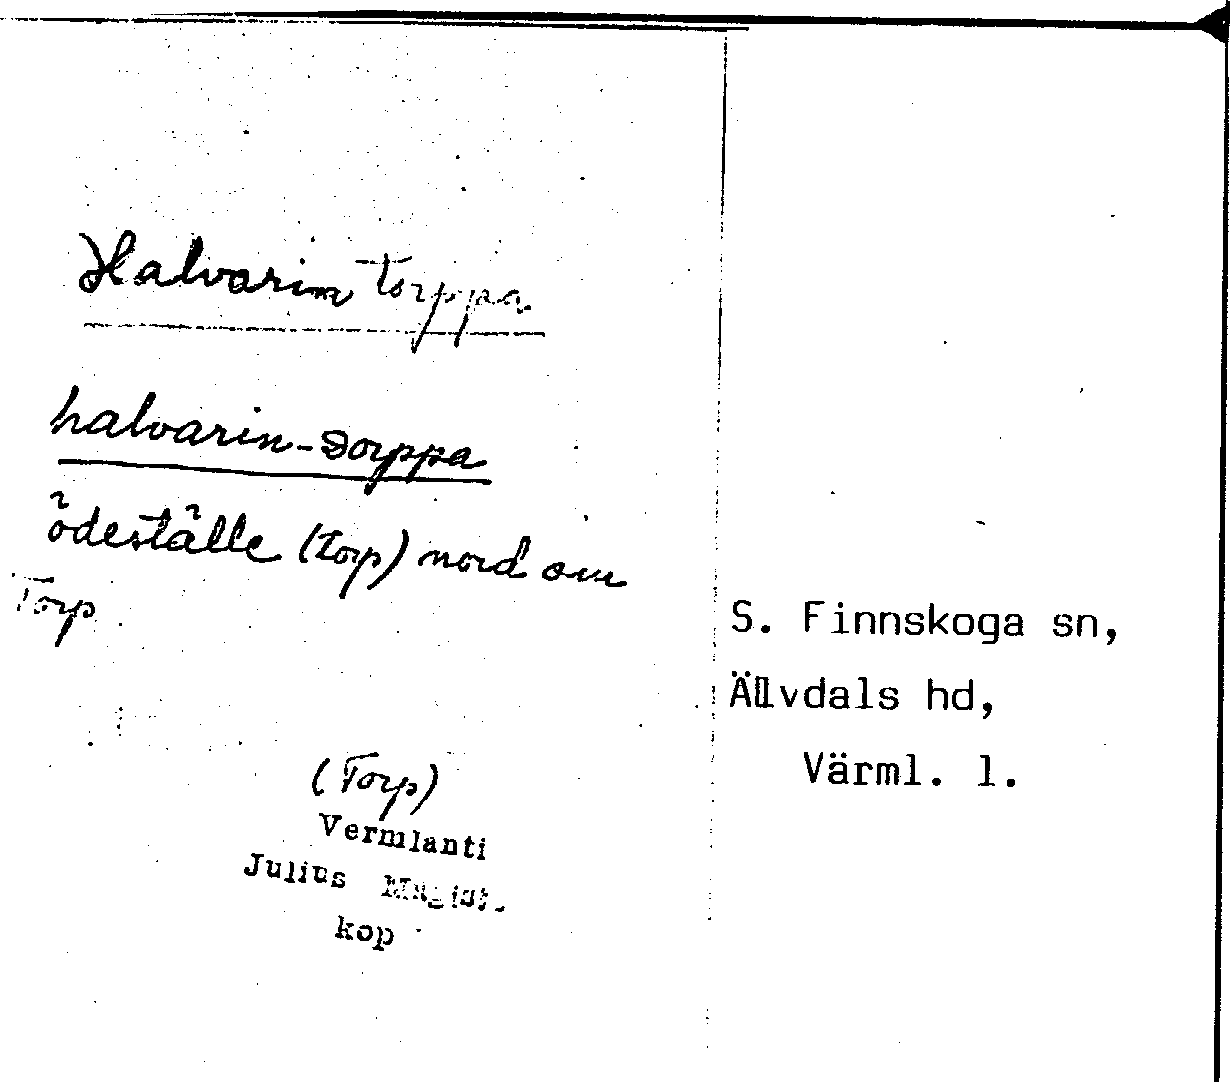 Halvarin torppa
halvarin-Dorppa
ödeställe (torp) nord om
Torp
(Torp)
Vermlanti
Julius Mägist.
kop
S. Finnskoga sn,
Älvdals hd,
Värml. l.